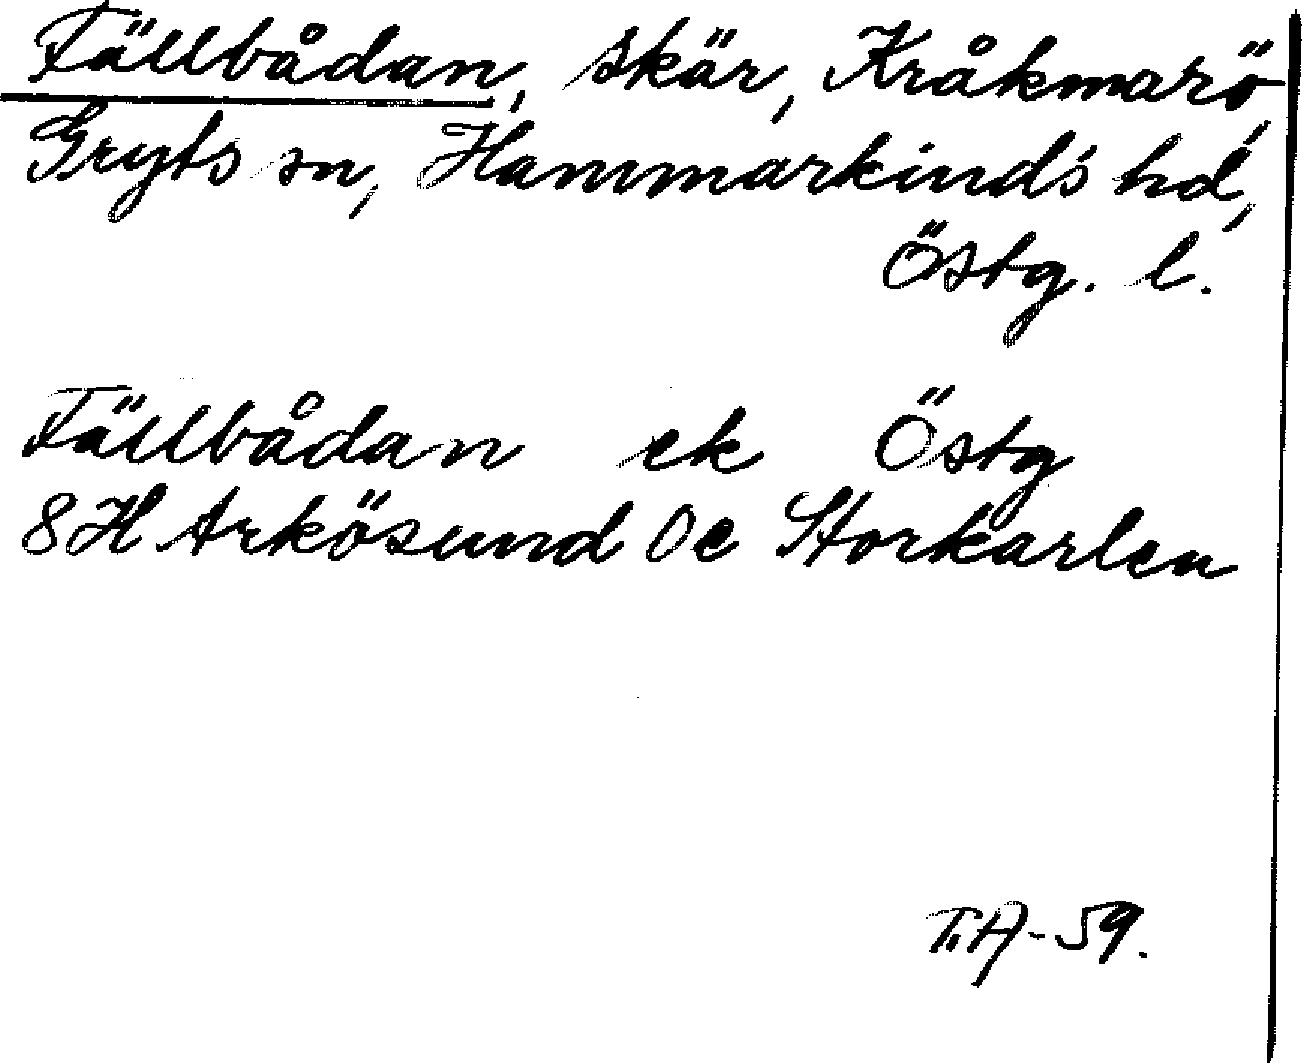 Fällbådan, skär, Kråkmarö,
Gryts sn, Hammarkinds hd,
Östg. l.
Fällbådan ek Östg
8H Arkösund 0e Storkarlen
T.A-59.